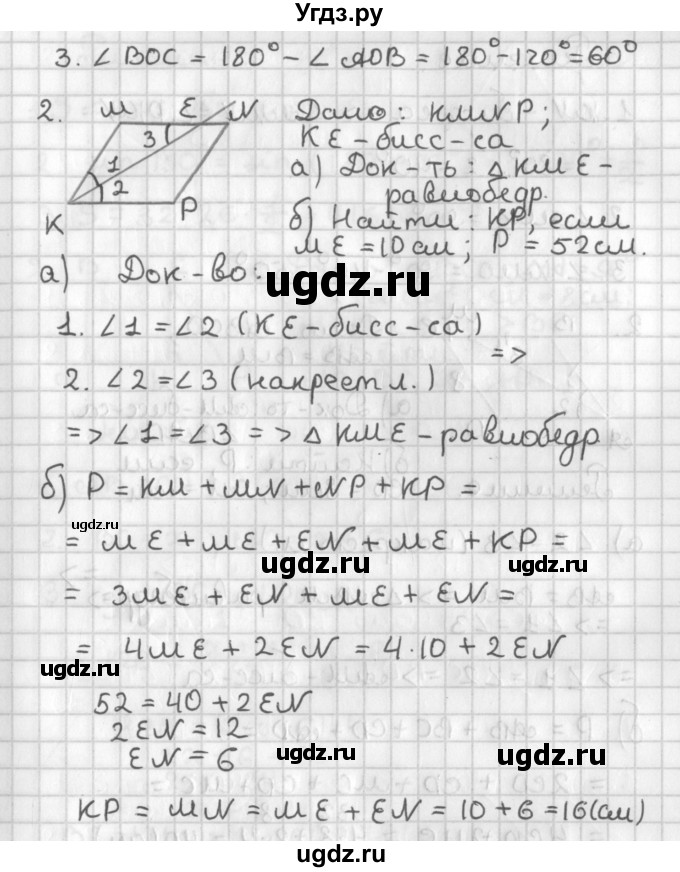 Угдз.ру
3. ∠ BOC = 180° − ∠ AOB = 180° − 120° = 60°
2. M E N Дано: KMNP;
3 KE − бисс-са
1 а) Док-ть: △ KME −
2 равнобедр.
K P б) Найти: KP, если
ME = 10 см; P = 52 см.
а) Док-во:
ugdz.ru
1. ∠1 = ∠2 (KE − бисс-са)
=>
2. ∠2 = ∠3 (накрест л.)
=> ∠1 = ∠3 => △ KME − равнобедр
б) P = KM + MN + NP + KP =
ugdz.ru
= ME + ME + EN + ME + KP =
ugdz.ru ugdz.ru
= 3ME + EN + ME + EN =
= 4ME + 2EN = 4·10 + 2EN
ugdz.ru
52 = 40 + 2EN
2EN = 12
EN = 6
ugdz.ru ugdz.ru
KP = MN = ME + EN = 10 + 6 = 16(см)
ugdz.ru